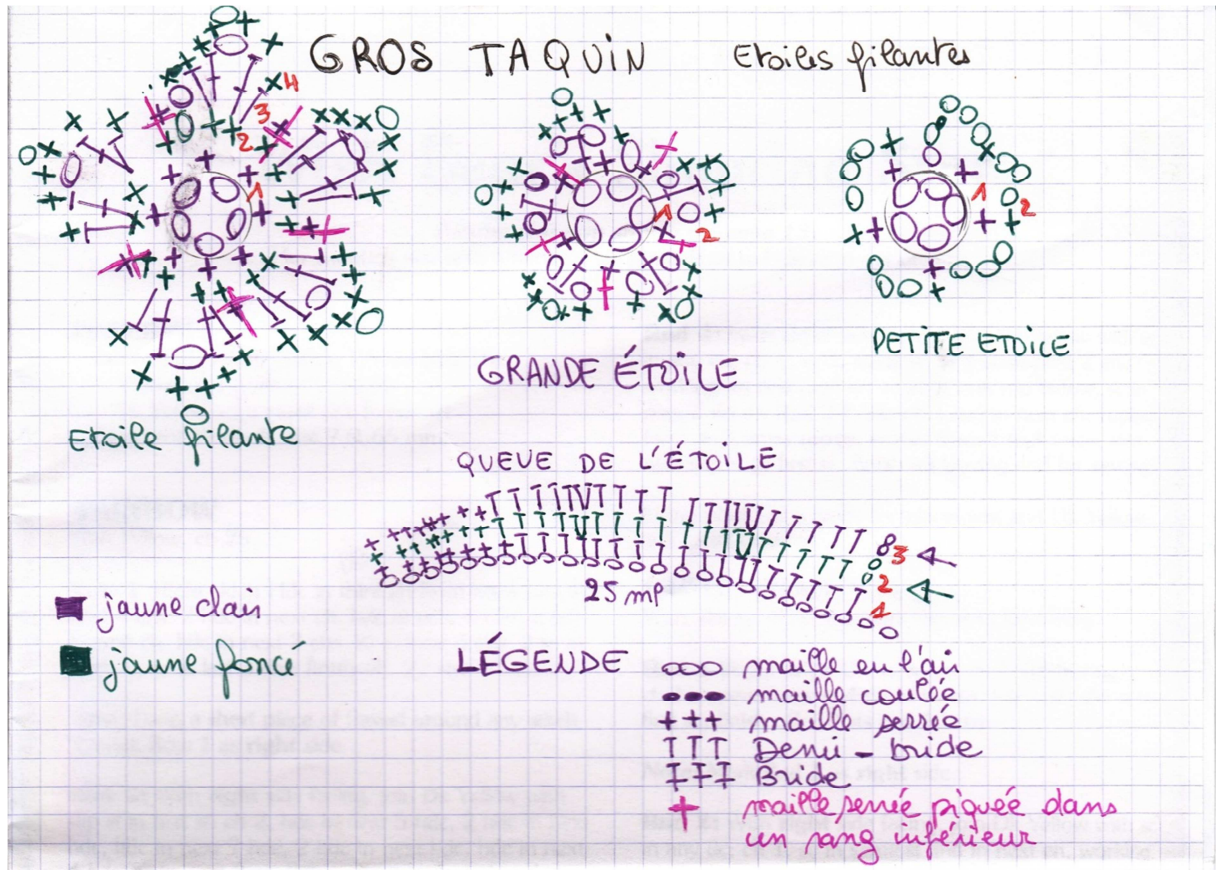 GROS TAQUIN
Etoiles filantes
4
3
2
1
1
2
1
2
PETITE ETOILE
GRANDE ÉTOILE
Etoile filante
QUEUE DE L'ÉTOILE
3
2
1
25 mp
jaune clair
jaune foncé
LÉGENDE
maille en l'air
maille coulée
maille serrée
Demi-bride
Bride
maille serrée piquée dans
un rang inférieur